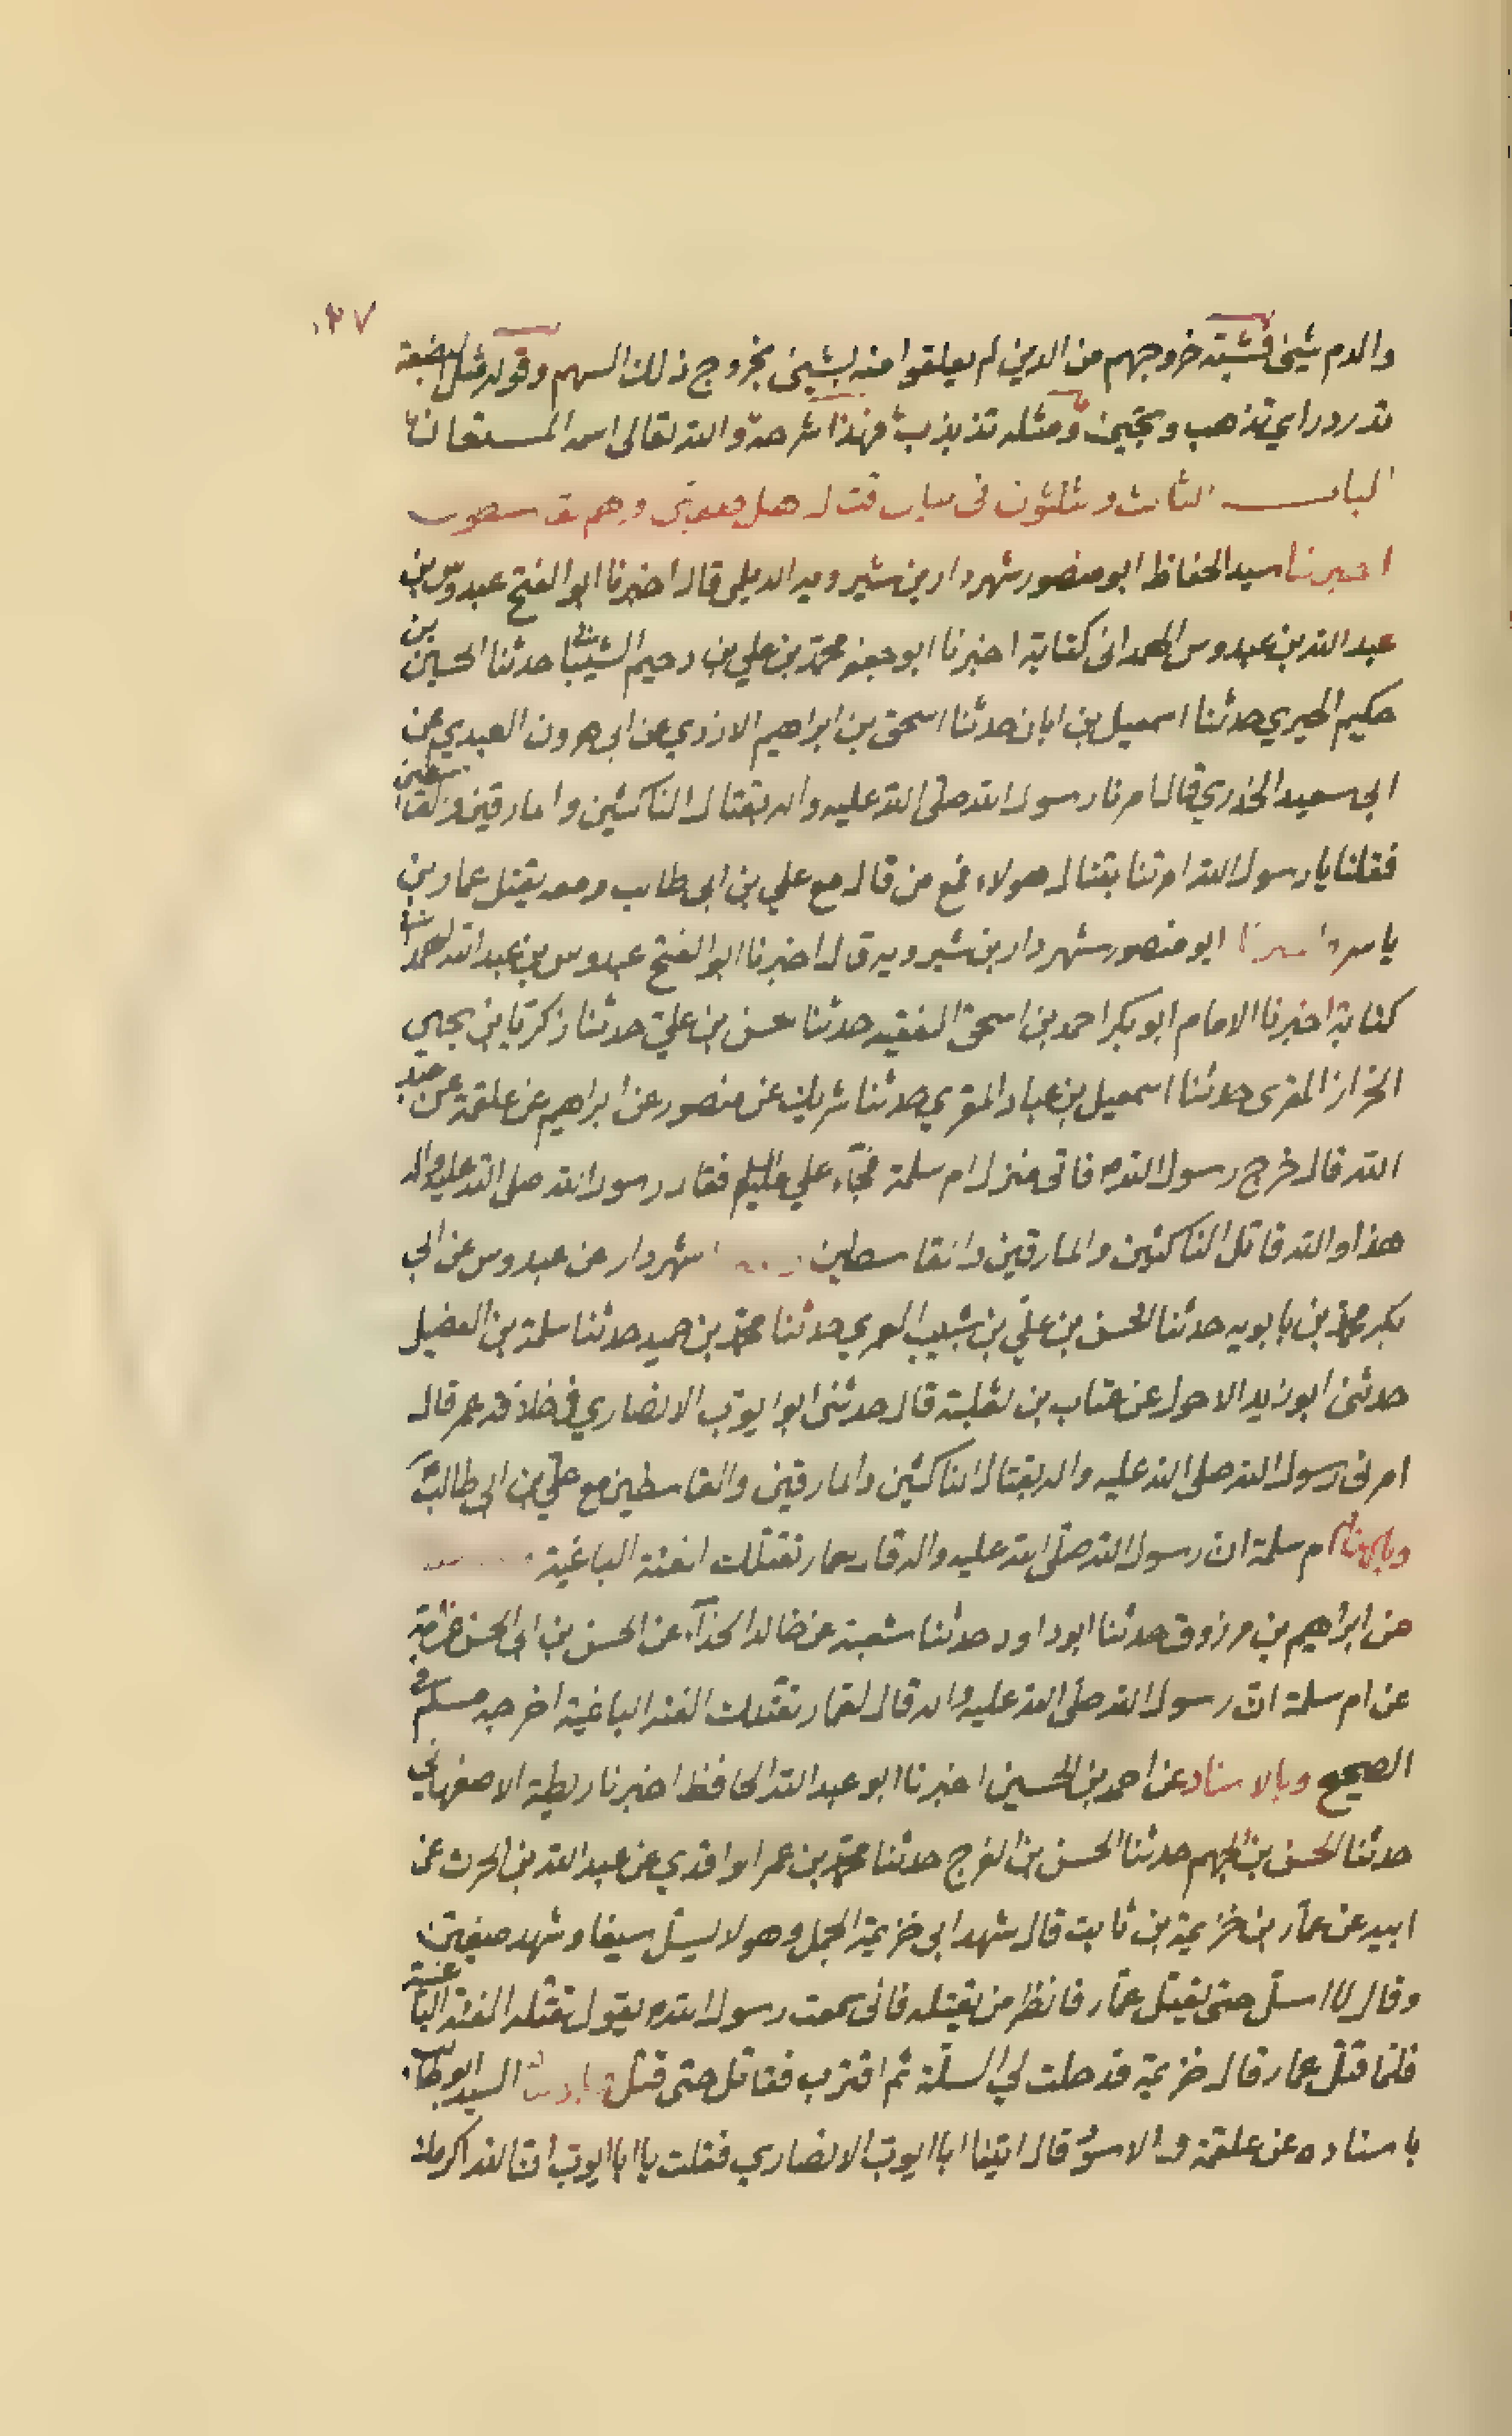 ٢٧
والدم شيئ فشبّه خروجهم من الدين لم يعلقوا منه بشيئ بخروج ذلك السهم وقوله مثل البضعة
تدردر اي تذهب وتجيئ ومثله تذبذب فهذا شرحه والله تعالى اسمه المستعان
الباب الثالث وثلثون في بيان قتال اهل صفين وهم القاسطون
اخبرنا سيد الحفاظ ابو منصور شهردار بن شيرويه الديلمي قال اخبرنا ابو الفتح عبدوس بن
عبد الله بن عبدوس الهمداني كتابة اخبرنا ابو جعفر محمد بن علي بن دحيم الشيباني حدثنا الحسين بن
حكيم الحيري حدثنا اسمعيل بن ابان حدثنا اسحق بن ابراهيم الازدي عن ابي هرون العبدي عن
ابي سعيد الخدري قال امرنا رسول الله صلى الله عليه واله بقتال الناكثين والمارقين والقاسطين
فقلنا يا رسول الله امرتنا بقتال هولاء فمع من قال مع علي بن ابي طالب ومعه يقتل عمار بن
ياسر واخبرنا ابو منصور شهردار بن شيرويه قال اخبرنا ابو الفتح عبدوس بن عبد الله الهمداني
كتابة اخبرنا الامام ابو بكر احمد بن اسحق الفقيه حدثنا حسن بن علي حدثنا زكريا بن يحيى
الخزاز المقرى حدثنا اسمعيل بن عباد المقري حدثنا شريك عن منصور عن ابراهيم عن علقمة عن عبد
الله قال خرج رسول الله ص فاتى منزل ام سلمة فجآء علي عليه السلام فقال رسول الله صلى الله عليه واله
هذا والله قاتل الناكثين والمارقين والقاسطين شهردار عن عبدوس عن ابي
بكر محمد بن بابويه حدثنا الحسن بن علي بن شبيب المعمري حدثنا محمد بن حميد حدثنا سلمة بن الفضيل
حدثني ابو زيد الاحول عن عتاب بن ثعلبة قال حدثني ابو ايوب الانصاري في خلافة عمر قال
امرني رسول الله صلى الله عليه واله بقتال الناكثين والمارقين والقاسطين مع علي بن ابي طالب
ام سلمة ان رسول الله صلى الله عليه واله قال لعمار تقتلك الفئة الباغية
عن ابراهيم بن مرزوق حدثنا ابو داود حدثنا شعبة عن خالد الحذآء عن الحسن بن ابي الحسن
عن ام سلمة ان رسول الله صلى الله عليه واله قال لعمار تقتلك الفئة الباغية اخرجه مسلم في
الصحيح وبالاسناد عن احمد بن الحسين اخبرنا ابو عبد الله الحافظ اخبرنا ربطة الاصفهاني
حدثنا الحسن بن الجهم حدثنا الحسن بن الفرج حدثنا محمد بن عمر الواقدي عن عبد الله بن الحرث عن
ابيه عن عمار بن خزيمة بن ثابت قال شهد ابي خزيمة الجمل وهو لا يسلّ سيفا وشهد صفين
وقال لا اسلّ حتى يقتل عمار فانظر من يقتله فاني سمعت رسول الله ص يقول تقتله الفئة الباغية
فلما قتل عمار قال خزيمة قد حلت لي السلّة ثم اقترب فقاتل حتى قتل السيد ابو طالب
باسناده عن علقمة والاسود قال اتينا ابا ايوب الانصاري فقلت يا ابا ايوب ان الله اكرمك